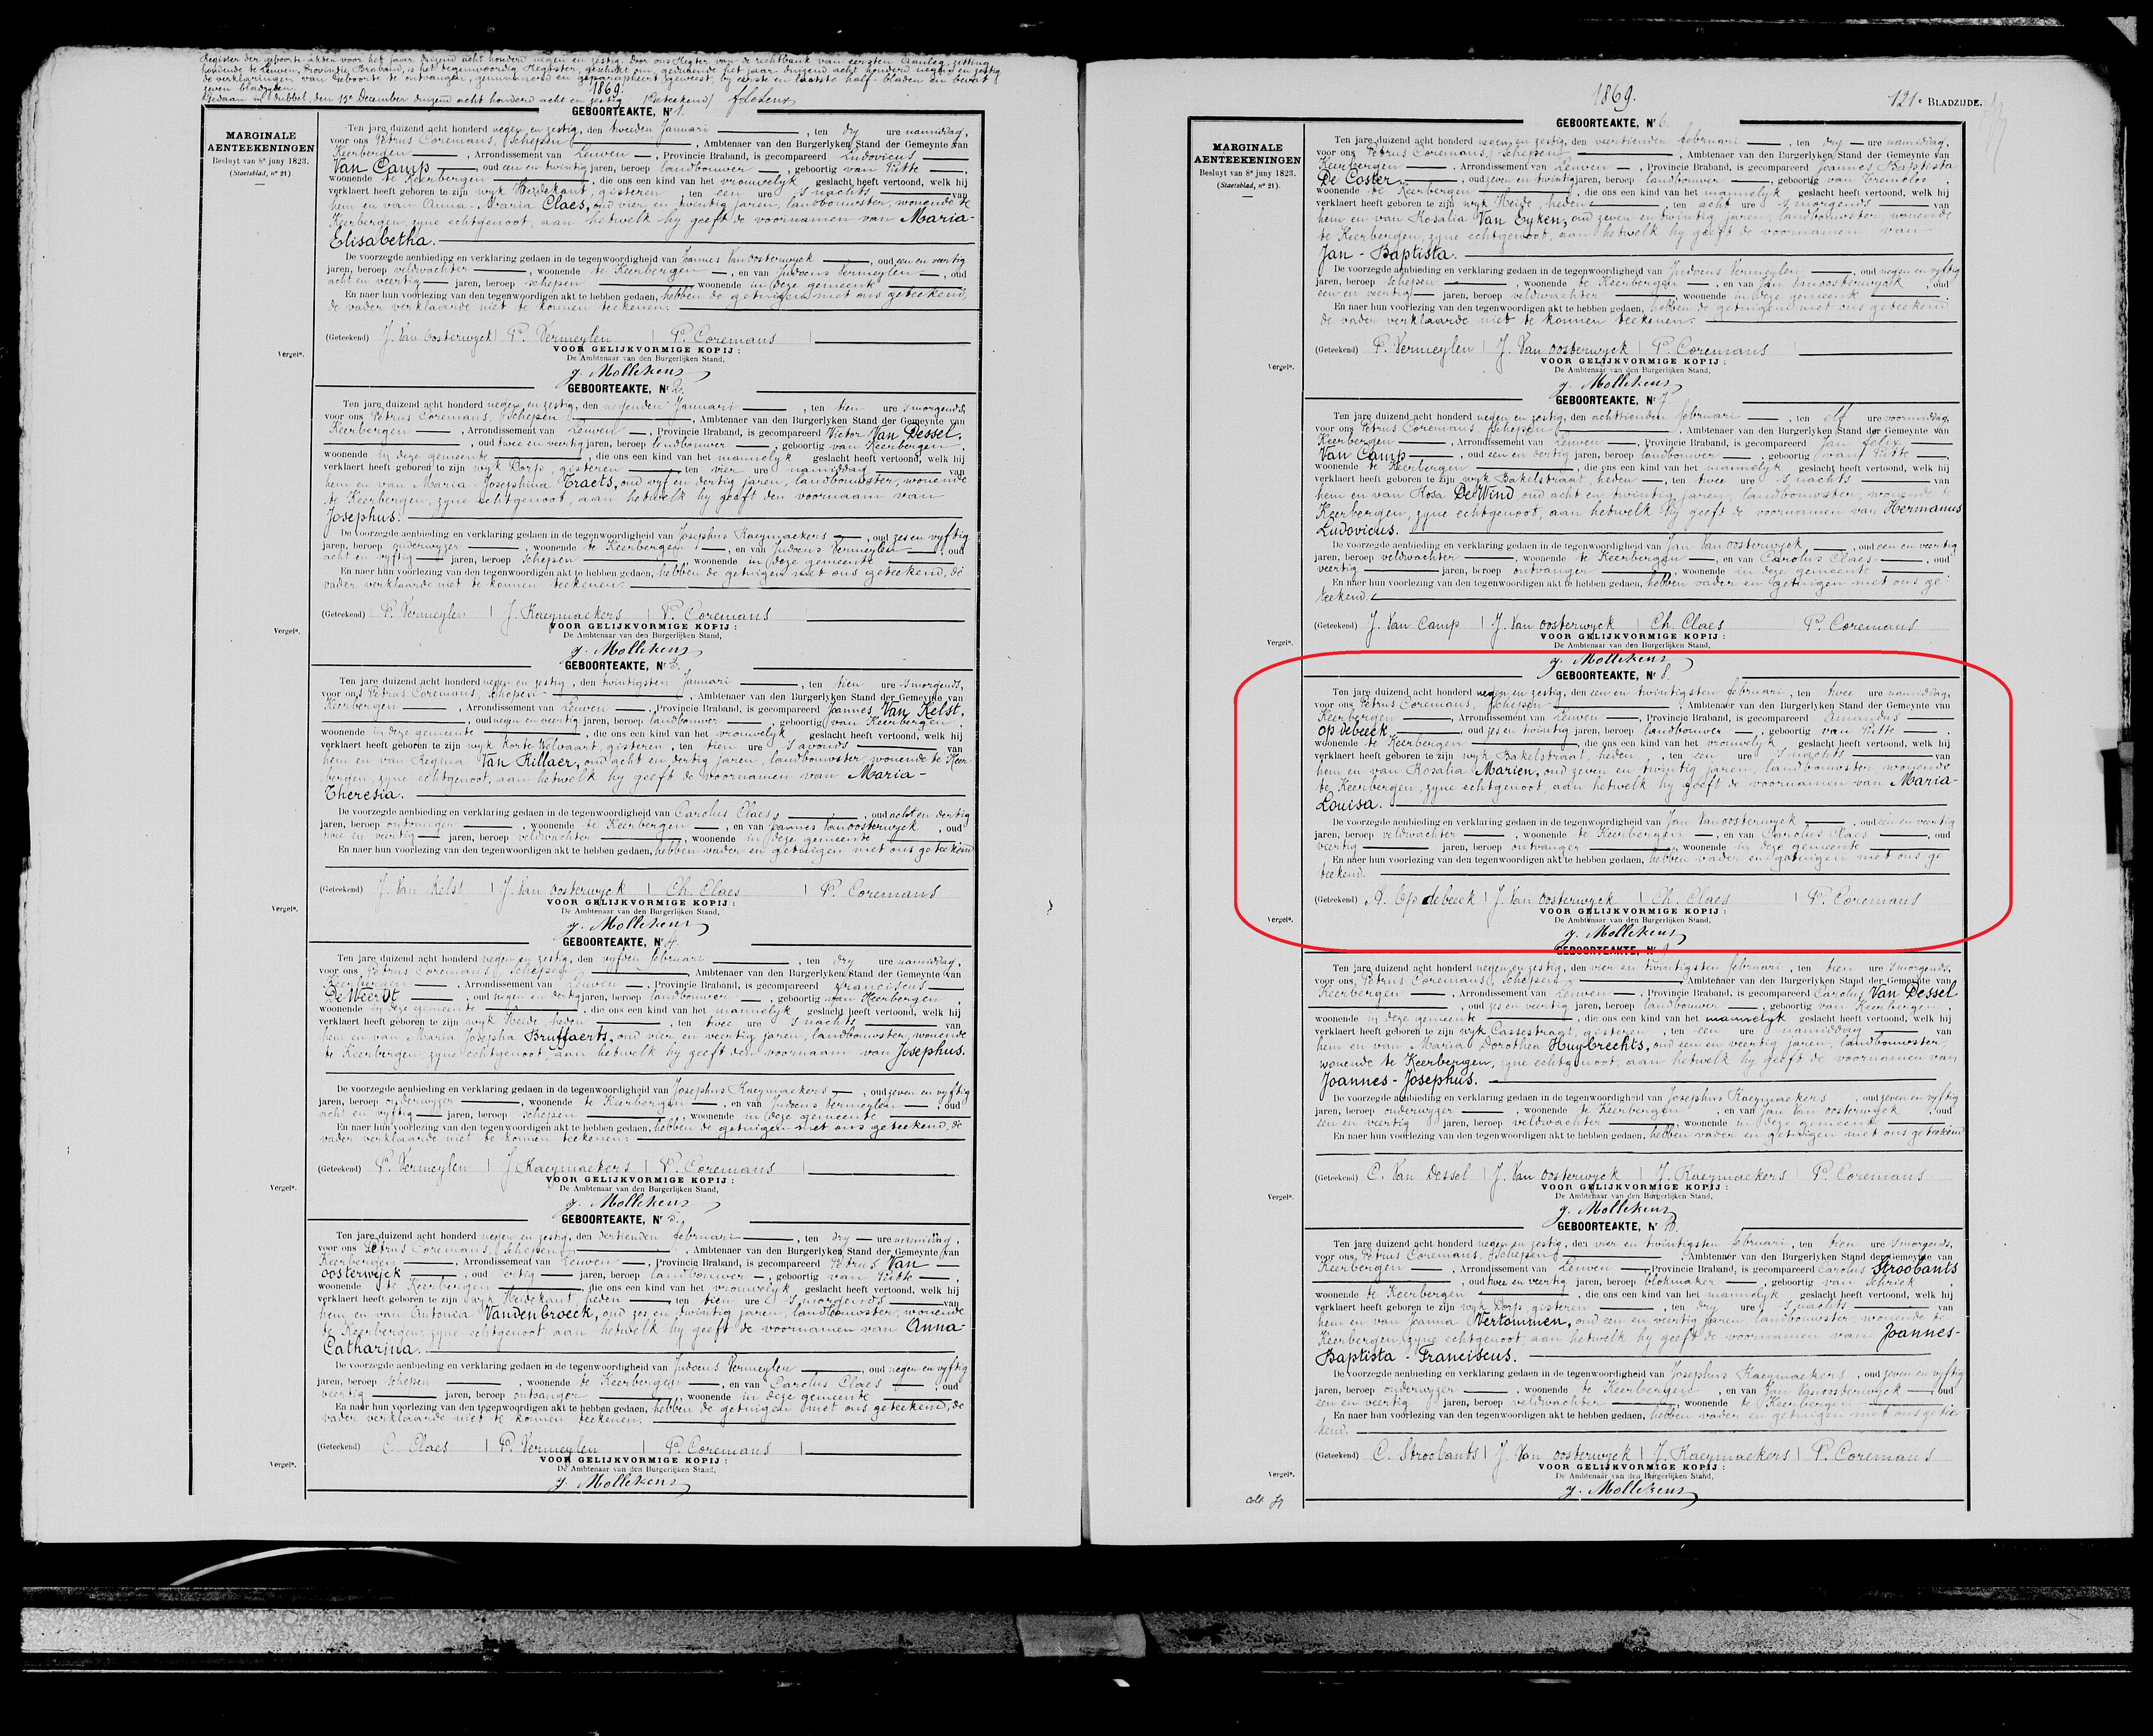 Register der geboorte akten voor het jaar duizend acht honderd negen en zestig. Door ons Regter van de rechtbank van eersten Aanleg, zitting
houdende te Leuven, Provintie Braband, is het tegenwoordig Register, geschikt om, gedurende het jaar duizend acht honderd negen en zestig
de verklaringen van Geboorte te ontvangen, genummerd en geparapheert geweest by eerste en laatste half-bladen en bevat
zeven bladzyden.
1869.
Gedaan in dubbel, den 15e December duizend acht honderd acht en zestig (Geteekend)
GEBOORTEAKTE, Nr 1.
MARGINALE
AENTEEKENINGEN
Besluyt van 8n juny 1823.
(Staetsblad, nº 21).
Ten jare duizend acht honderd negen en zestig, den tweeden Januari, ten dry ure namiddag,
voor ons Petrus Coremans, Schepen, Ambtenaer van den Burgerlyken Stand der Gemeynte van
Keerbergen, Arrondissement van Leuven, Provincie Braband, is gecompareerd Ludovicus
Van Camp, oud een en twintig jaren, beroep landbouwer, geboortig van Putte,
woonende te Keerbergen, die ons een kind van het vrouwelyk geslacht heeft vertoond, welk hij
verklaert heeft geboren te zijn wyk Heidekant, gisteren, ten een ure 's nachts van
hem en van Anna-Maria Claes, oud vier en twintig jaren, landbouwster, wonende te
Keerbergen, zyne echtgenoot, aan hetwelk hy geeft de voornamen van Maria-
Elisabetha.
De voorzegde aenbieding en verklaring gedaen in de tegenwoordigheid van Joannes Vanoosterwyck, oud een en veertig
jaren, beroep veldwachter, woonende te Keerbergen, en van Judocus Vermeylen, oud
acht en veertig jaren, beroep schepen, woonende in deze gemeente
En naer hun voorlezing van den tegenwoordigen akt te hebben gedaen, hebben de getuigen met ons geteekend,
de vader verklaarde niet te konnen teekenen.
(Geteekend) J. Van Oosterwyck P. Vermeylen P. Coremans
VOOR GELIJKVORMIGE KOPIJ :
De Ambtenaar van den Burgerlijken Stand,
Vergeln.
J. Mollekens
GEBOORTEAKTE, Nr 2.
Ten jare duizend acht honderd negen en zestig, den negenden Januari, ten tien ure 's morgends,
voor ons Petrus Coremans, Schepen, Ambtenaer van den Burgerlyken Stand der Gemeynte van
Keerbergen, Arrondissement van Leuven, Provincie Braband, is gecompareerd Victor Van Dessel,
oud twee en veertig jaren, beroep landbouwer, geboortig van Keerbergen,
woonende in deze gemeente, die ons een kind van het mannelyk geslacht heeft vertoond, welk hij
verklaert heeft geboren te zijn wyk Dorp, gisteren ten vier ure namiddag van
hem en van Maria-Josephina Traets, oud vyf en dertig jaren, landbouwster, wonende
te Keerbergen, zyne echtgenoot, aan hetwelk hy geeft den voornaam van
Josephus.
De voorzegde aenbieding en verklaring gedaen in de tegenwoordigheid van Josephus Raeymaekers, oud zes en vyftig
jaren, beroep onderwyzer, woonende te Keerbergen, en van Judocus Vermeylen, oud
acht en vyftig jaren, beroep schepen, woonende in deze gemeente
En naer hun voorlezing van den tegenwoordigen akt te hebben gedaen, hebben de getuigen met ons geteekend, de
vader verklaarde niet te konnen teekenen.
(Geteekend) P. Vermeylen J. Raeymaekers P. Coremans
VOOR GELIJKVORMIGE KOPIJ :
De Ambtenaar van den Burgerlijken Stand,
Vergeln.
J. Mollekens
GEBOORTEAKTE, Nr 3.
Ten jare duizend acht honderd negen en zestig, den twintigsten Januari, ten tien ure 's morgends,
voor ons Petrus Coremans, schepen, Ambtenaer van den Burgerlyken Stand der Gemeynte van
Keerbergen, Arrondissement van Leuven, Provincie Braband, is gecompareerd Joannes Van Kelst,
oud negen en veertig jaren, beroep landbouwer, geboortig van Keerbergen,
woonende in deze gemeente, die ons een kind van het vrouwelyk geslacht heeft vertoond, welk hij
verklaert heeft geboren te zijn wyk Korte Welvaart, gisteren, ten tien ure 's avonds van
hem en van Regina Van Killaer, oud acht en dertig jaren, landbouwster, wonende te Keer-
bergen, zyne echtgenoot, aan hetwelk hy geeft de voornamen van Maria-
Theresia.
De voorzegde aenbieding en verklaring gedaen in de tegenwoordigheid van Carolus Claes, oud acht en dertig
jaren, beroep ontvanger, woonende te Keerbergen, en van Joannes Vanoosterwyck, oud
twee en veertig jaren, beroep veldwachter, woonende in deze gemeente
En naer hun voorlezing van den tegenwoordigen akt te hebben gedaen, hebben vader en getuigen met ons geteekend
(Geteekend) J. Van Kelst J. Van Oosterwyck Ch. Claes P. Coremans
VOOR GELIJKVORMIGE KOPIJ :
De Ambtenaar van den Burgerlijken Stand,
Vergeln.
J. Mollekens
GEBOORTEAKTE, Nr 4.
Ten jare duizend acht honderd negen en zestig, den vyfden februari, ten dry ure namiddag,
voor ons Petrus Coremans, Schepen, Ambtenaer van den Burgerlyken Stand der Gemeynte van
Keerbergen, Arrondissement van Leuven, Provincie Braband, is gecompareerd franciscus
De Weerdt, oud negen en dertig jaren, beroep landbouwer, geboortig van Keerbergen,
woonende in deze gemeente, die ons een kind van het mannelyk geslacht heeft vertoond, welk hij
verklaert heeft geboren te zijn wyk Heide, heden, ten twee ure 's nachts van
hem en van Maria Josepha Bruffaerts, oud vier en veertig jaren, landbouwster, wonende
te Keerbergen, zyne echtgenoot, aan hetwelk hy geeft den voornaam van Josephus.
De voorzegde aenbieding en verklaring gedaen in de tegenwoordigheid van Josephus Raeymaekers, oud zeven en vyftig
jaren, beroep onderwyzer, woonende te Keerbergen, en van Judocus Vermeylen, oud
acht en vyftig jaren, beroep schepen, woonende in deze gemeente
En naer hun voorlezing van den tegenwoordigen akt te hebben gedaen, hebben de getuigen met ons geteekend, de
vader verklaarde niet te konnen teekenen.
(Geteekend) P. Vermeylen J. Raeymaekers P. Coremans
VOOR GELIJKVORMIGE KOPIJ :
De Ambtenaar van den Burgerlijken Stand,
Vergeln.
J. Mollekens
GEBOORTEAKTE, Nr 5.
Ten jare duizend acht honderd negen en zestig, den dertienden februari, ten dry ure namiddag,
voor ons Petrus Coremans, Schepen, Ambtenaer van den Burgerlyken Stand der Gemeynte van
Keerbergen, Arrondissement van Leuven, Provincie Braband, is gecompareerd Petrus Van
oosterwyck, oud dertig jaren, beroep landbouwer, geboortig van Putte,
woonende te Keerbergen, die ons een kind van het vrouwelyk geslacht heeft vertoond, welk hij
verklaert heeft geboren te zijn wyk Heidekant, heden ten tien ure 's morgends van
hem en van Antonia Vandenbroeck, oud zes en twintig jaren, landbouwster, wonende
te Keerbergen, zyne echtgenoot, aan hetwelk hy geeft de voornamen van Anna-
Catharina.
De voorzegde aenbieding en verklaring gedaen in de tegenwoordigheid van Judocus Vermeylen, oud negen en vyftig
jaren, beroep schepen, woonende te Keerbergen, en van Carolus Claes, oud
veertig jaren, beroep ontvanger, woonende in deze gemeente
En naer hun voorlezing van den tegenwoordigen akt te hebben gedaen, hebben de getuigen met ons geteekend, de
vader verklaarde niet te konnen teekenen.
(Geteekend) C. Claes P. Vermeylen P. Coremans
VOOR GELIJKVORMIGE KOPIJ :
De Ambtenaar van den Burgerlijken Stand,
Vergeln.
J. Mollekens
1869.
121e BLADZIJDE.
GEBOORTEAKTE, Nr 6.
MARGINALE
AENTEEKENINGEN
Besluyt van 8n juny 1823.
(Staetsblad, nº 21).
Ten jare duizend acht honderd negen en zestig, den veertienden februari, ten dry ure namiddag,
voor ons Petrus Coremans, Schepen, Ambtenaer van den Burgerlyken Stand der Gemeynte van
Keerbergen, Arrondissement van Leuven, Provincie Braband, is gecompareerd Joannes Baptista
De Coster, oud zeven en twintig jaren, beroep landbouwer, geboortig van Tremeloo,
woonende te Keerbergen, die ons een kind van het mannelyk geslacht heeft vertoond, welk hij
verklaert heeft geboren te zijn wyk Heide, heden, ten acht ure 's morgends van
hem en van Rosalia Van Eyken, oud zeven en twintig jaren, landbouwster, wonende
te Keerbergen, zyne echtgenoot, aan hetwelk hy geeft de voornamen van
Jan-Baptista.
De voorzegde aenbieding en verklaring gedaen in de tegenwoordigheid van Judocus Vermeylen, oud negen en vyftig
jaren, beroep schepen, woonende te Keerbergen, en van Jan Vanoosterwyck, oud
een en veertig jaren, beroep veldwachter, woonende in deze gemeente
En naer hun voorlezing van den tegenwoordigen akt te hebben gedaen, hebben de getuigen met ons geteekend
de vader verklaarde niet te konnen teekenen.
(Geteekend) P. Vermeylen J. Van Oosterwyck P. Coremans
VOOR GELIJKVORMIGE KOPIJ :
De Ambtenaar van den Burgerlijken Stand,
Vergeln.
J. Mollekens
GEBOORTEAKTE, Nr 7.
Ten jare duizend acht honderd negen en zestig, den achttienden februari, ten elf ure voormiddag,
voor ons Petrus Coremans, Schepen, Ambtenaer van den Burgerlyken Stand der Gemeynte van
Keerbergen, Arrondissement van Leuven, Provincie Braband, is gecompareerd Jan felix
Van Camp, oud een en dertig jaren, beroep landbouwer, geboortig van Putte,
woonende te Keerbergen, die ons een kind van het mannelyk geslacht heeft vertoond, welk hij
verklaert heeft geboren te zijn wyk Bakelstraat, heden, ten twee ure 's nachts van
hem en van Rosa De Wind oud acht en twintig jaren, landbouwster, wonende te
Keerbergen, zyne echtgenoot, aan hetwelk hy geeft de voornamen van Hermanus
Ludovicus.
De voorzegde aenbieding en verklaring gedaen in de tegenwoordigheid van Jan Vanoosterwyck, oud een en veertig
jaren, beroep veldwachter, woonende te Keerbergen, en van Carolus Claes, oud
veertig jaren, beroep ontvanger, woonende in deze gemeente
En naer hun voorlezing van den tegenwoordigen akt te hebben gedaen, hebben vader en getuigen met ons ge-
teekend.
(Geteekend) J. Van Camp J. Van Oosterwyck Ch. Claes P. Coremans
VOOR GELIJKVORMIGE KOPIJ :
De Ambtenaar van den Burgerlijken Stand,
Vergeln.
J. Mollekens
GEBOORTEAKTE, Nr 8.
Ten jare duizend acht honderd negen en zestig, den een en twintigsten februari, ten twee ure namiddag,
voor ons Petrus Coremans, Schepen, Ambtenaer van den Burgerlyken Stand der Gemeynte van
Keerbergen, Arrondissement van Leuven, Provincie Braband, is gecompareerd Amandus
Op debeeck, oud zes en twintig jaren, beroep landbouwer, geboortig van Putte,
woonende te Keerbergen, die ons een kind van het vrouwelyk geslacht heeft vertoond, welk hij
verklaert heeft geboren te zijn wyk Bakelstraat, heden, ten een ure 's nachts van
hem en van Rosalia Marien, oud zeven en twintig jaren, landbouwster wonende
te Keerbergen, zyne echtgenoot, aan hetwelk hy geeft de voornamen van Maria-
Louisa.
De voorzegde aenbieding en verklaring gedaen in de tegenwoordigheid van Jan Vanoosterwyck, oud een en veertig
jaren, beroep veldwachter, woonende te Keerbergen, en van Carolus Claes, oud
veertig jaren, beroep ontvanger, woonende in deze gemeente
En naer hun voorlezing van den tegenwoordigen akt te hebben gedaen, hebben vader en getuigen met ons ge
teekend.
(Geteekend) A. Op debeeck J. Van Oosterwyck Ch. Claes P. Coremans
VOOR GELIJKVORMIGE KOPIJ :
De Ambtenaar van den Burgerlijken Stand,
Vergeln.
J. Mollekens
GEBOORTEAKTE, Nr 9.
Ten jare duizend acht honderd negen en zestig, den vier en twintigsten februari, ten tien ure 's morgends,
voor ons Petrus Coremans, Schepen, Ambtenaer van den Burgerlyken Stand der Gemeynte van
Keerbergen, Arrondissement van Leuven, Provincie Braband, is gecompareerd Carolus Van Dessel
oud zes en veertig jaren, beroep landbouwer, geboortig van Keerbergen,
woonende in deze gemeente, die ons een kind van het mannelyk geslacht heeft vertoond, welk hij
verklaert heeft geboren te zijn wyk Castestraat, gisteren, ten een ure namiddag van
hem en van Maria Dorothea Huybrechts, oud een en veertig jaren, landbouwster,
wonende te Keerbergen, zyne echtgenoot, aan hetwelk hy geeft de voornamen van
Joannes-Josephus.
De voorzegde aenbieding en verklaring gedaen in de tegenwoordigheid van Josephus Raeymaekers, oud zeven en vyftig
jaren, beroep onderwyzer, woonende te Keerbergen, en van Jan Van oosterwyck, oud
een en veertig jaren, beroep veldwachter, woonende in deze gemeente
En naer hun voorlezing van den tegenwoordigen akt te hebben gedaen, hebben vader en getuigen met ons geteekend
(Geteekend) C. Van Dessel J. Van Oosterwyck J. Raeymaekers P. Coremans
VOOR GELIJKVORMIGE KOPIJ :
De Ambtenaar van den Burgerlijken Stand,
Vergeln.
J. Mollekens
GEBOORTEAKTE, Nr 10.
Ten jare duizend acht honderd negen en zestig, den vier en twintigsten februari, ten tien ure 's morgends,
voor ons Petrus Coremans, Schepen, Ambtenaer van den Burgerlyken Stand der Gemeynte van
Keerbergen, Arrondissement van Leuven, Provincie Braband, is gecompareerd Carolus Stroobants
oud twee en veertig jaren, beroep blokmaker, geboortig van Schriek,
woonende te Keerbergen, die ons een kind van het mannelyk geslacht heeft vertoond, welk hij
verklaert heeft geboren te zijn wyk Dorp, gisteren, ten dry ure 's nachts van
hem en van Joanna Vertommen, oud een en veertig jaren, landbouwster, wonende te
Keerbergen, zyne echtgenoot, aan hetwelk hy geeft de voornamen van Joannes-
Baptista-Franciscus.
De voorzegde aenbieding en verklaring gedaen in de tegenwoordigheid van Josephus Raeymaekers, oud zeven en vyftig
jaren, beroep onderwyzer, woonende te Keerbergen, en van Jan Vanoosterwyck, oud
een en veertig jaren, beroep veldwachter, woonende te Keerbergen
En naer hun voorlezing van den tegenwoordigen akt te hebben gedaen, hebben vader en getuigen met ons getee-
kend.
(Geteekend) C. Stroobants J. Van Oosterwyck J. Raeymaekers P. Coremans
VOOR GELIJKVORMIGE KOPIJ :
De Ambtenaar van den Burgerlijken Stand,
Vergeln.
J. Mollekens